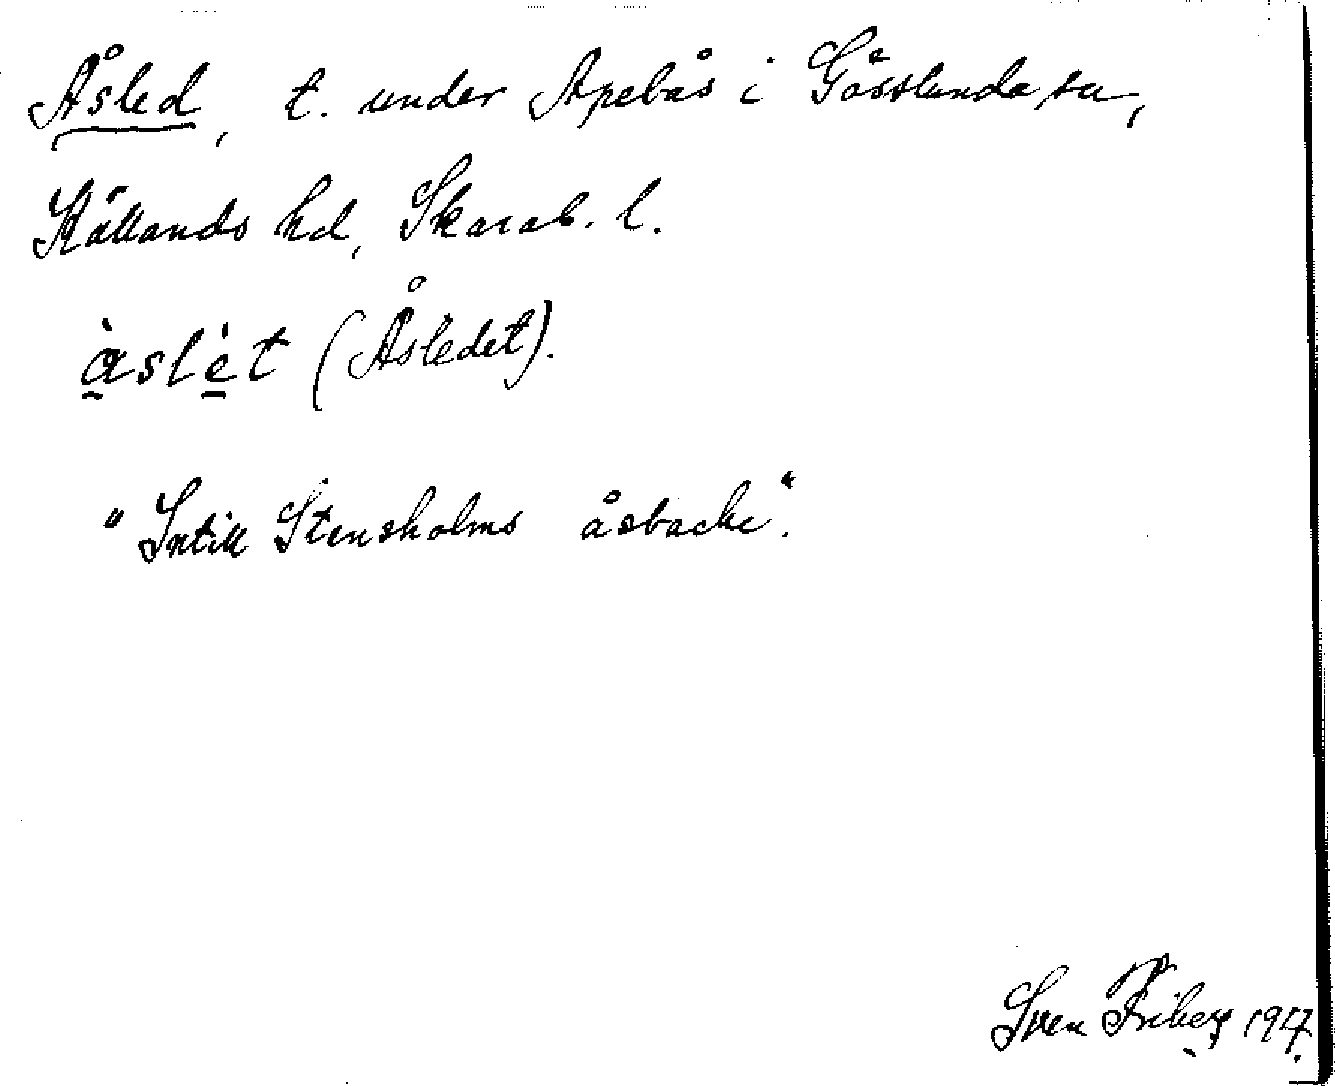 Åsled, t. under Apebås i Gösslunda sn,
Kållands hd, Skarab. l.
àslèt (Åsledet).
"Intill Stensholms åsbacke".
Sven Friberg